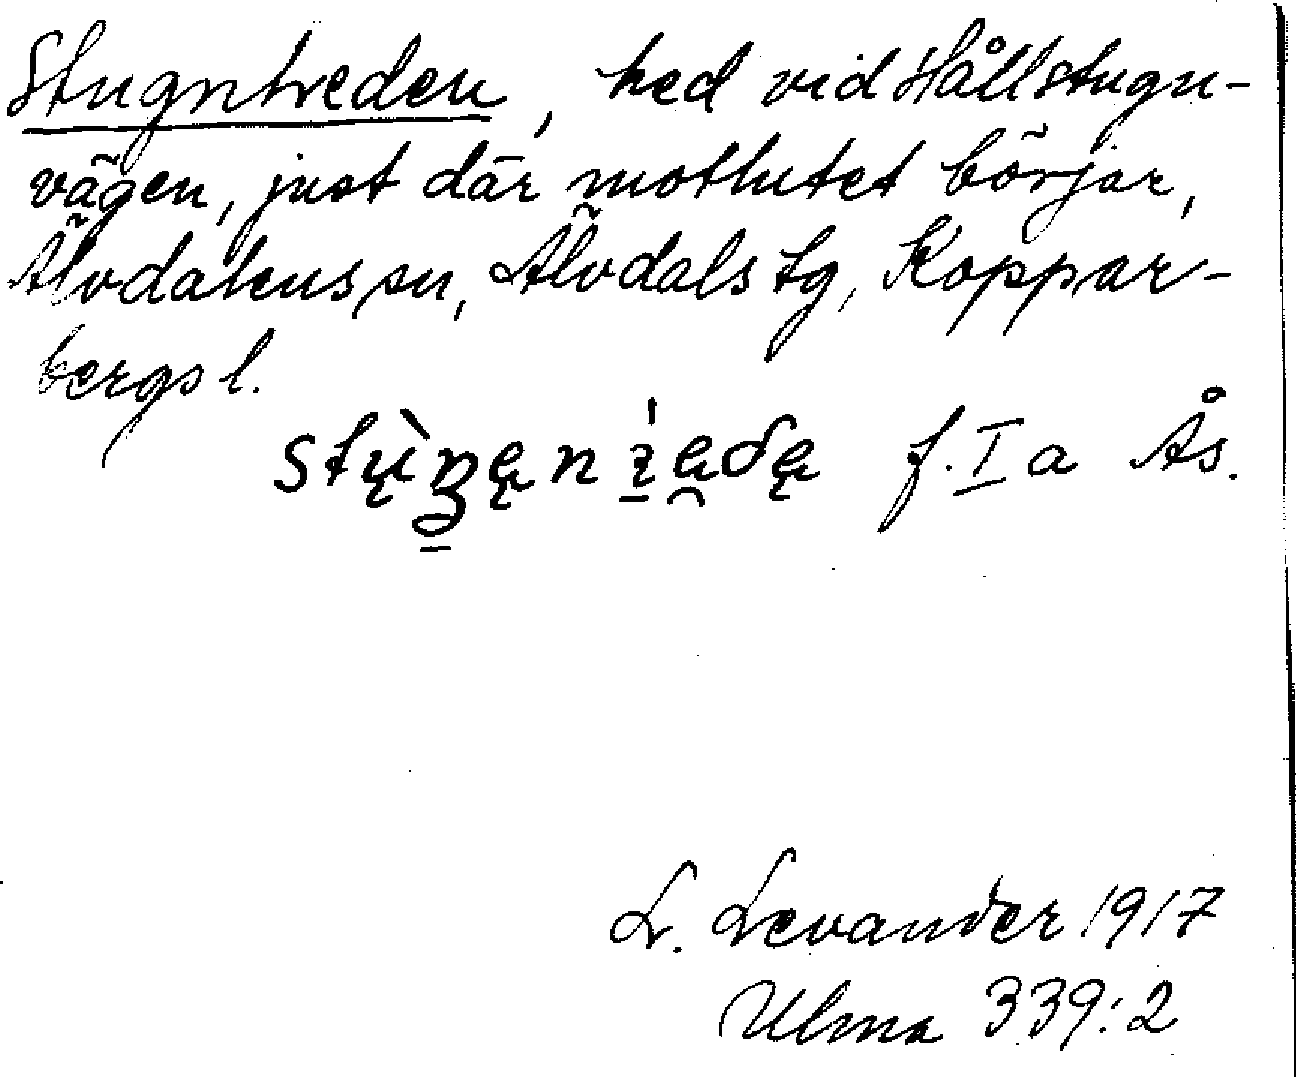 Stugnheden, hed vid Hållstugu-
vägen, just där motlutet börjar,
Älvdalens sn, Älvdals tg, Koppar-
bergs l.
f. I a Ås.
L. Levander 1917
Ulma 339:2